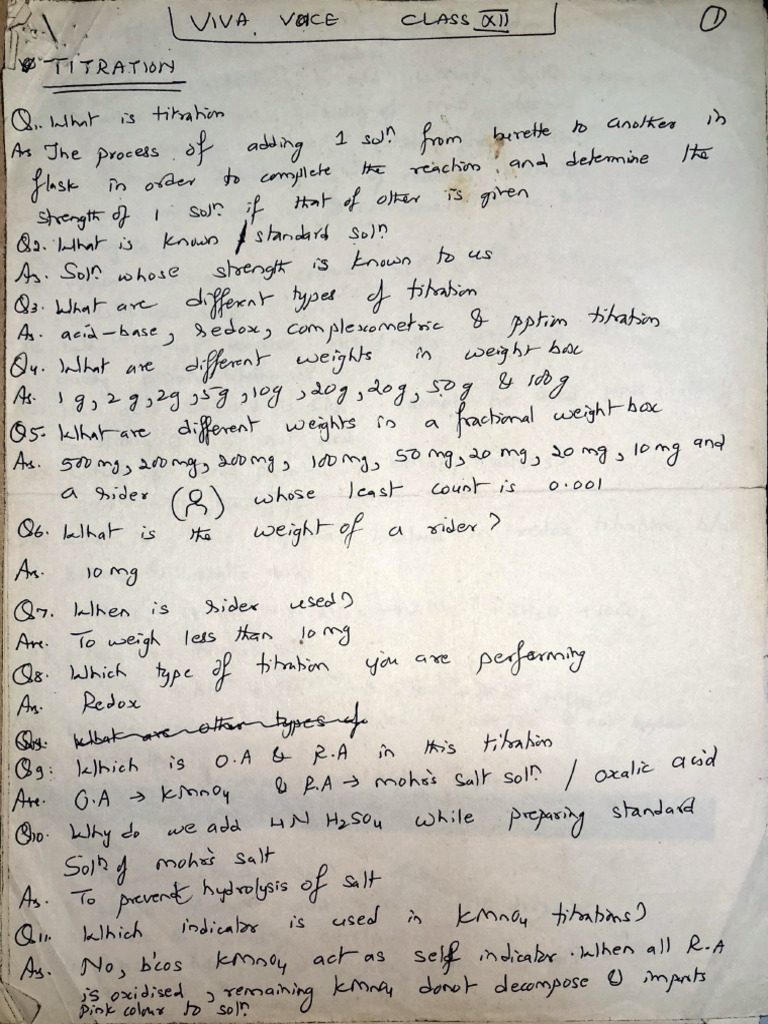 VIVA VOICE CLASS XII
1
TITRATION
Q1. What is titration
As The process of adding 1 solⁿ from burette to another in
flask in order to complete the reaction and determine the
strength of 1 solⁿ if that of other is given
Q2. What is known / standard solⁿ
As. Solⁿ whose strength is known to us
Q3. What are different types of titration
As. acid-base, redox, complexometric & pption titration
Q4. What are different weights in weight box
As. 1g, 2g, 2g, 5g, 10g, 20g, 20g, 50g & 100g
Q5. What are different weights in a fractional weight box
As. 500mg, 200mg, 200mg, 100mg, 50mg, 20mg, 20mg, 10mg and
a rider ( ) whose least count is 0.001
Q6. What is the weight of a rider?
As. 10 mg
Q7. When is rider used?
Ans. To weigh less than 10mg
Q8. Which type of titration you are performing
As. Redox
What are other types of
Q9: Which is O.A & R.A in this titration
Ans. O.A → KMnO4 & R.A → mohr's salt solⁿ / oxalic acid
Q10. Why do we add 4N H2SO4 while preparing standard
Solⁿ of mohr's salt
As. To prevent hydrolysis of salt
Q11. Which indicator is used in KMnO4 titrations?
As. No, b'cos KMnO4 act as self indicator. When all R.A
is oxidised, remaining KMnO4 donot decompose & imparts
pink colour to solⁿ